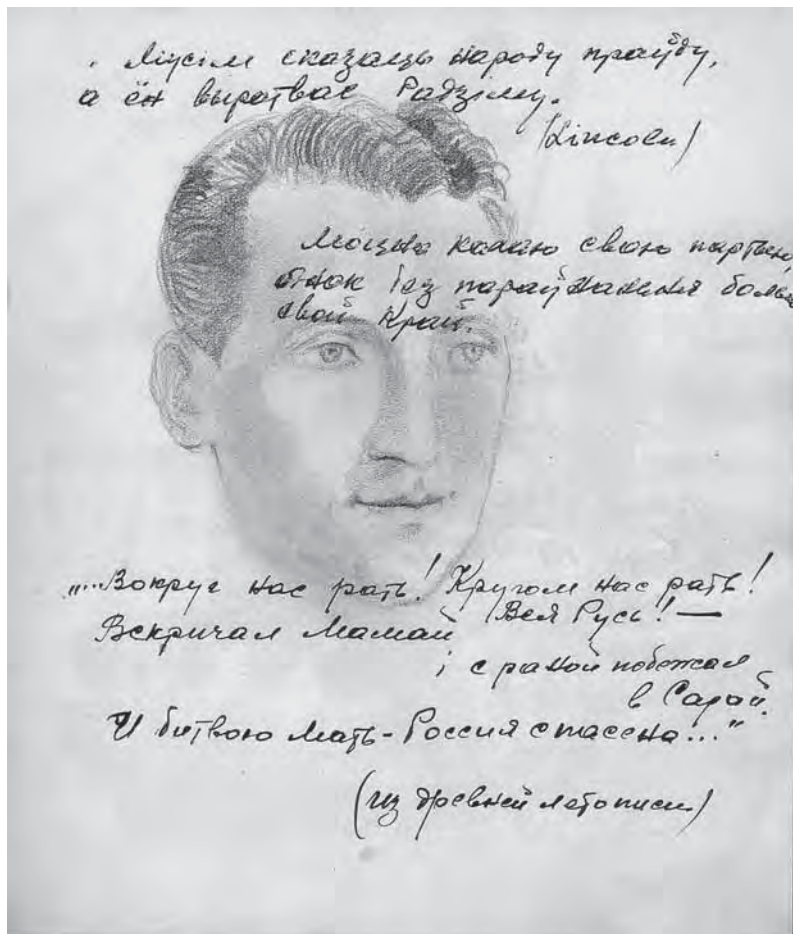 Мусіле сказаць народу праўду,
а ён выратвае Радзіму.
(Lincoln)
Моцна кахаю свою партыю,
біяк без параўнаньня больш
свой край.
„...Вокруг нас рать! Кругом нас рать!
Вся Русь! —
Вскричал Мамай
і с раной побежал
в Сарай.
И битвою Мать-Россия спасена..."
(из древней летописи)